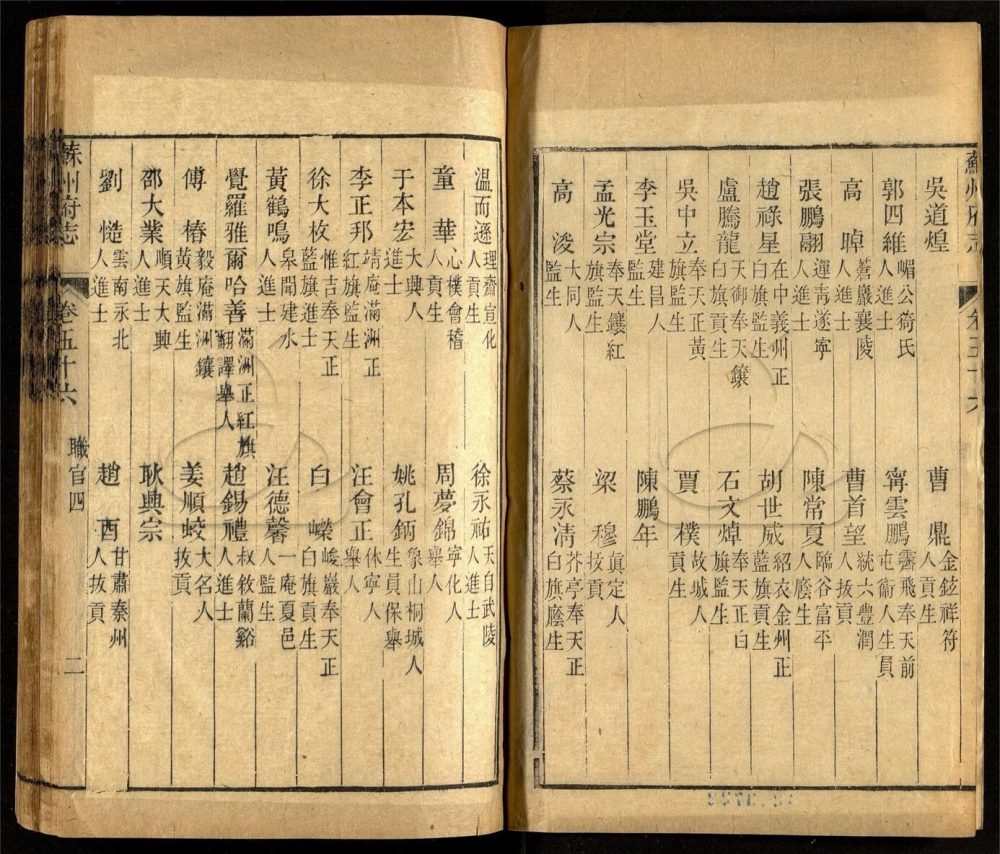 蘇州府志
吳道煌
曹鼎 金鉉祥符人貢生
郭四維 嵋公猗氏人進士
甯雲鵬 霽飛奉天前屯衞人生員
高晫 蒼巖襄陵人進士
曹首望 統六豐潤人拔貢
張鵬翮 運青遂寧人進士
陳常夏 臨谷富平人廕生
趙祿星 在中義州正白旗監生
胡世威 紹衣金州正藍旗貢生
盧騰龍 天御奉天鑲白旗貢生
石文焯 奉天正白旗監生
吳中立 奉天正黃旗監生
賈樸 故城人貢生
李玉堂 建昌人監生
陳鵬年
孟光宗 奉天鑲紅旗監生
梁穆 真定人拔貢
高浚 大同人監生
蔡永清 芥亭奉天正白旗廕生
溫而遜 理齋宣化人貢生
徐永祐 天自武陵人進士
童華 心樸會稽人貢生
周夢錦 寧化人舉人
于本宏 大興人進士
姚孔鈵 象山桐城人生員保舉
李正邦 靖庵滿洲正紅旗監生
汪會正 休寧人舉人
徐大枚 惟吉奉天正藍旗進士
白嶸 峻巖奉天正白旗貢生
黃鶴鳴 臯聞建水人進士
汪德馨 一庵夏邑人監生
覺羅雅爾哈善 滿洲正紅旗翻譯舉人
趙錫禮 叔敘蘭谿人進士
傅椿 毅庵滿洲鑲黃旗監生
姜順蛟 大名人拔貢
邵大業 順天大興人進士
耿興宗
劉慥 雲南永北人進士
趙酉 甘肅秦州人拔貢
蘇州府志 卷五十六 職官四 二